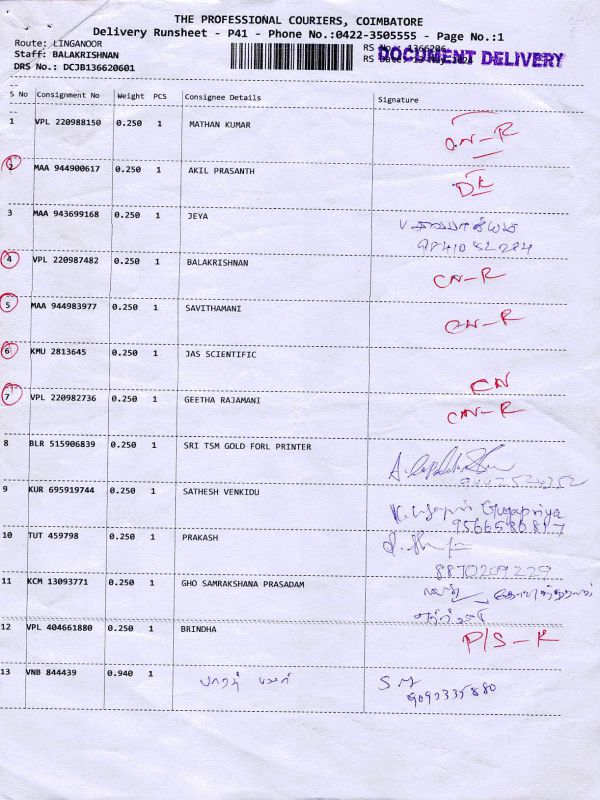 THE PROFESSIONAL COURIERS, COIMBATORE
Delivery Runsheet - P41 - Phone No.:0422-3505555 - Page No.:1
Route: LINGANOOR
Staff: BALAKRISHNAN
DRS No.: DCJB136620601
RS No.: 1366206
RS Date:
DOCUMENT DELIVERY
S No Consignment No Weight PCS Consignee Details Signature
1 VPL 220988150 0.250 1 MATHAN KUMAR
2 MAA 944900617 0.250 1 AKIL PRASANTH DK
3 MAA 943699168 0.250 1 JEYA
4 VPL 220987482 0.250 1 BALAKRISHNAN CN-R
5 MAA 944983977 0.250 1 SAVITHAMANI CN-R
6 KMU 2813645 0.250 1 JAS SCIENTIFIC CN
7 VPL 220982736 0.250 1 GEETHA RAJAMANI CN-R
8 BLR 515906839 0.250 1 SRI TSM GOLD FORL PRINTER
9442524352
9 KUR 695919744 0.250 1 SATHESH VENKIDU
Gugapriya
10 TUT 459798 0.250 1 PRAKASH
8870209229
11 KCM 13093771 0.250 1 GHO SAMRAKSHANA PRASADAM
12 VPL 404661880 0.250 1 BRINDHA P/S-K
13 VNB 844439 0.940 1